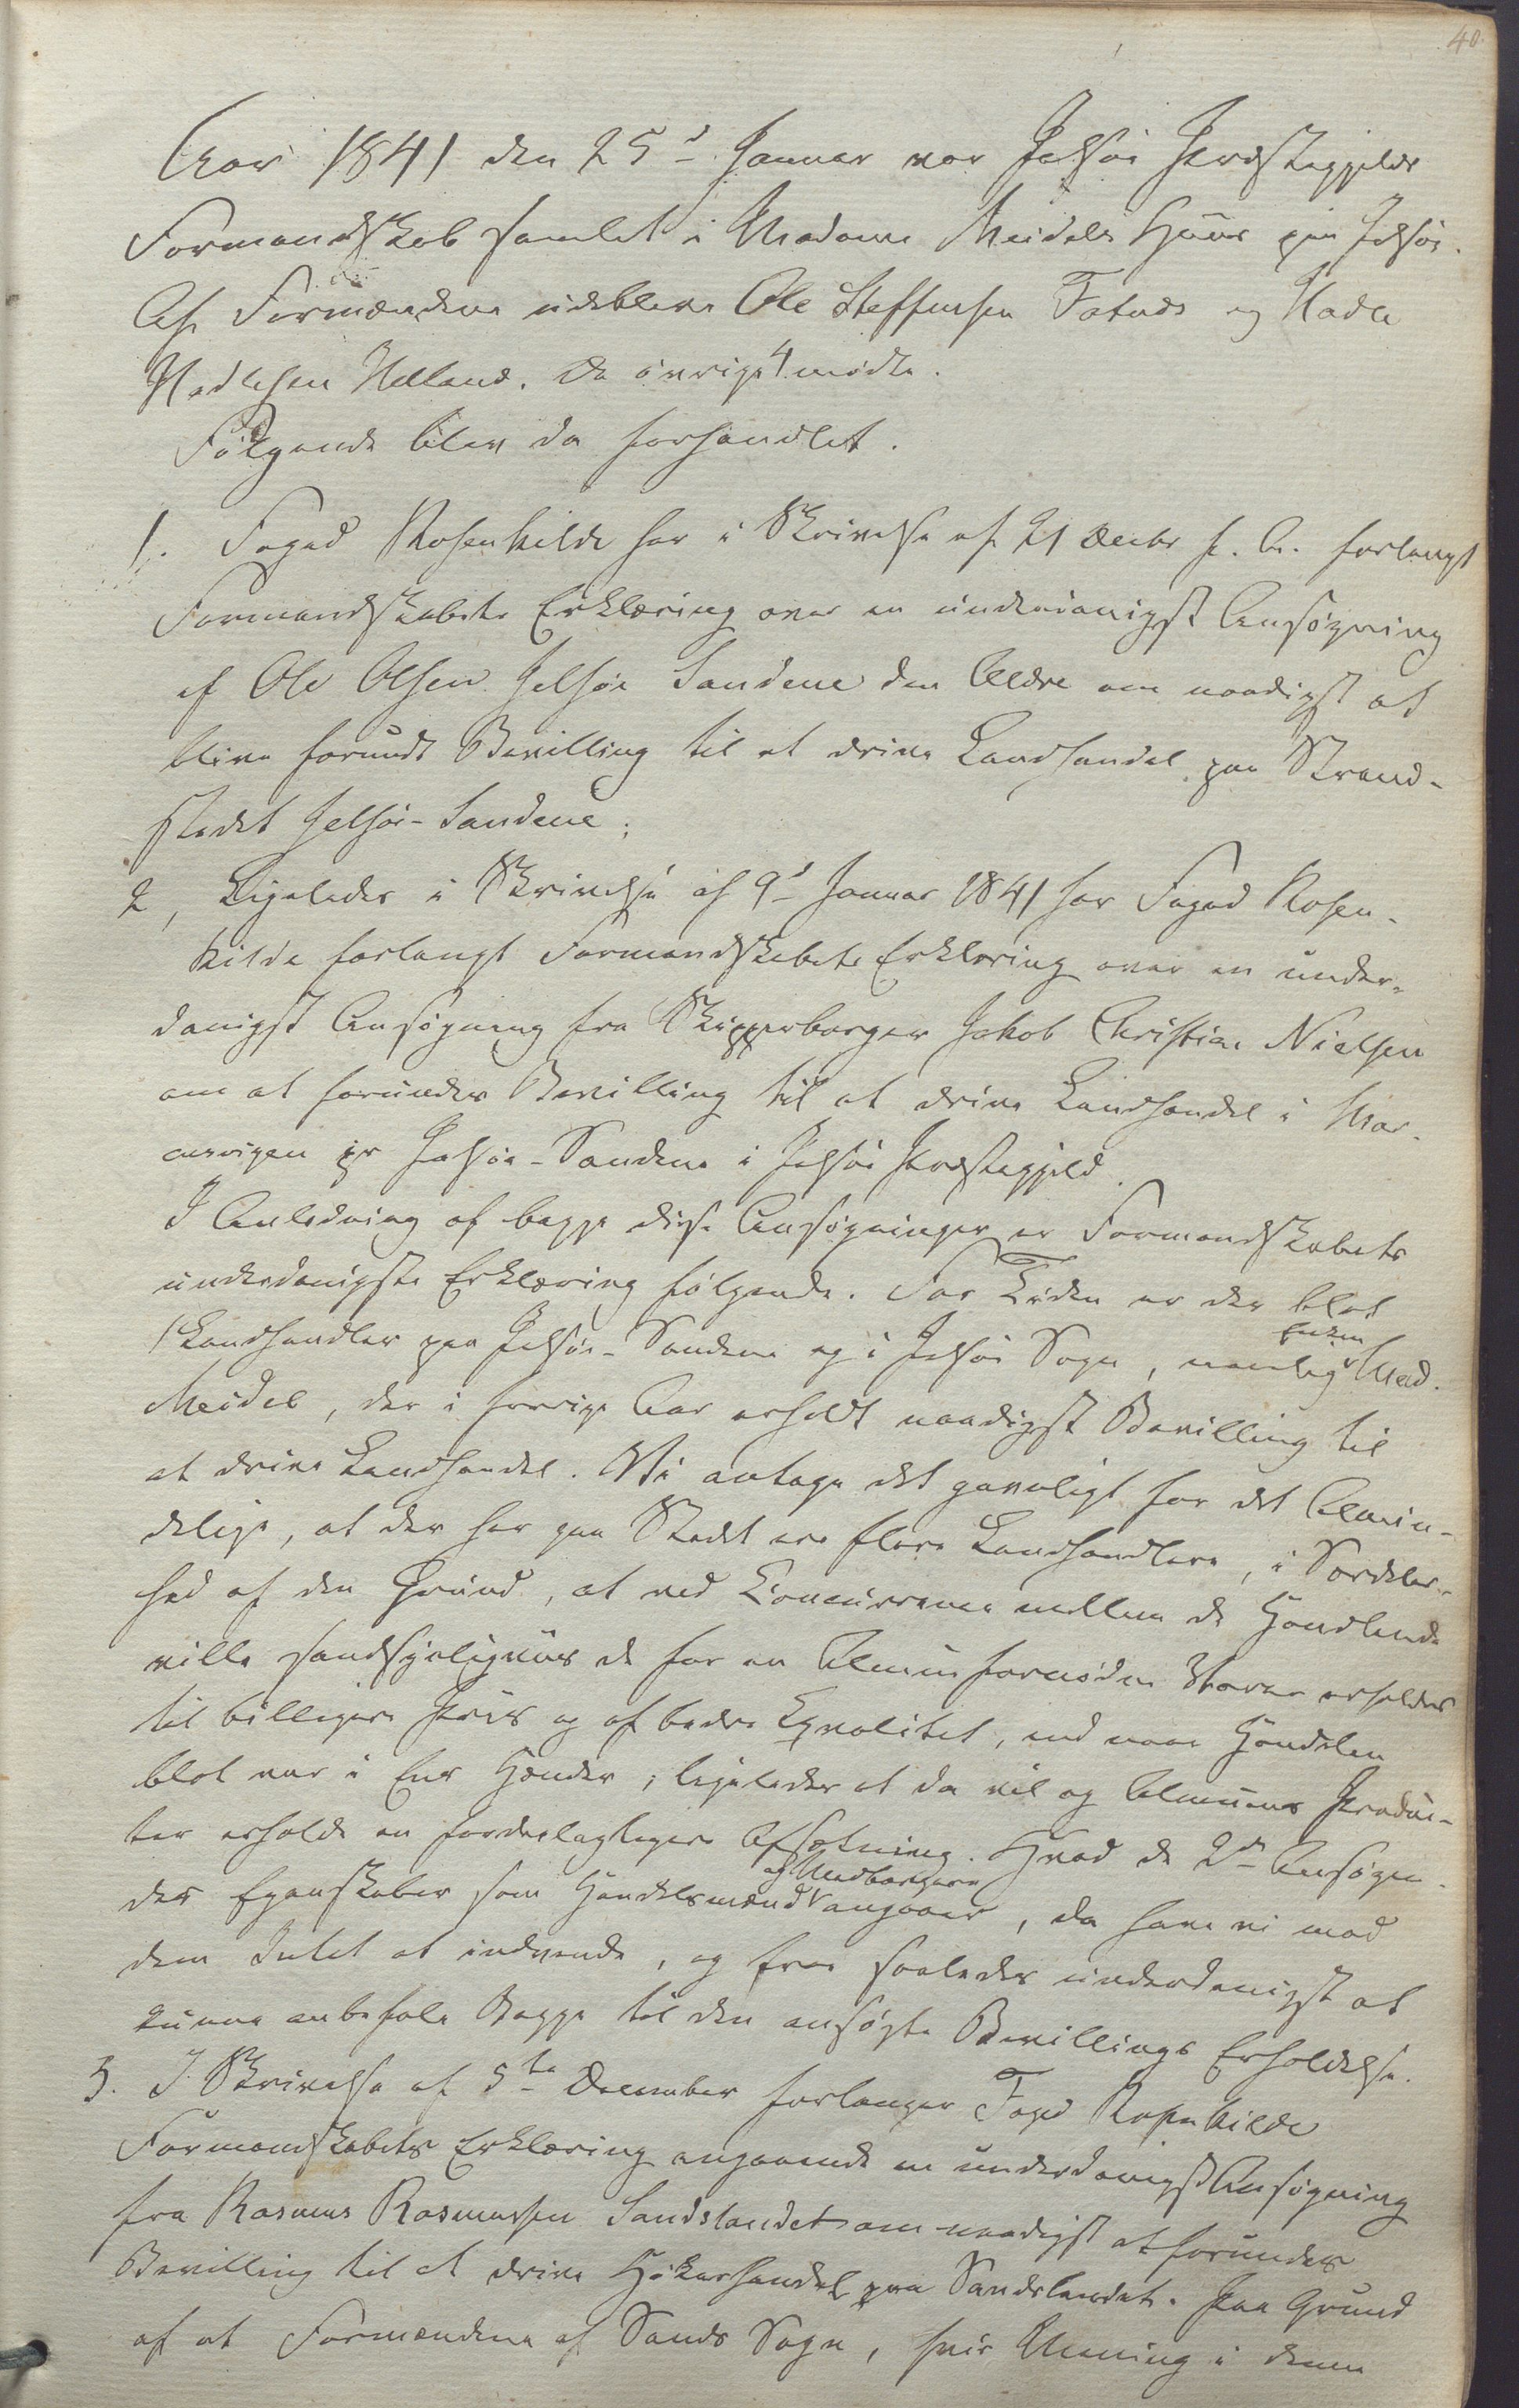 40.
Aar 1841 den 25d Januar var Jelsøe Præstegjelds
Formandskab samlet i Madame Meidels Huus paa Jelsøe.
Af Formændene udebleve Ole Steffensen Foteds og Hadle
Hadlesen Helland. De øvrige 4 mødte.
Følgende blev da forhandlet.
1. Foged Rosenkilde har i Skrivelse af 21 Decbr f. A. forlangt
Formandskabets Erklæring over en underdanigst Ansøgning
af Ole Olsen Jelsøe Sandene den Ældre om naadigst at
blive forundt Bevilling til at drive Landhandel paa Strand-
stedet Jelsøe-Sandene;
2, Ligeledes i Skrivelse af 9d Januar 1841 har Foged Rosen-
kilde forlangt Formandskabets Erklæring over en under-
danigst Ansøgning fra Skipperborger Jakob Christian Nielsen
om at forundes Bevilling til at drive Landhandel i Mar-
envigen pr Jelsøe-Sandene i Jelsøe Præstegjeld.
I Anledning af begge disse Ansøgninger er Formandskabets
underdanigste Erklæring følgende. For Tiden er der blot
1 Landhandler paa Jelsøe-Sandene og i Jelsøe Sogn, nemlig Enken Mad.
Meidel, der i forrige Aar erholdt naadigst Bevilling til
at drive Landhandel. Vi antage det gavnligt for det Almin-
delige, at der her paa Stedet ere flere Landhandlere, i Særdeles-
hed af den Grund, at ved Concurrence mellem de Handlende
ville sandsynligviis de for en Almue fornødne Varer erholdes
til billigere Priis og af bedre Qvalitet, end naar Handelen
blot var i Ens Hænder; ligeledes at da vil og Almuens Produc-
ter erholde en fordeelagtigere Afsætning. Hvad de 2de Ansøgen-
des Egenskaber som Handelsmænd og Medborgere angaaer, da have vi mod
dem Intet at indvende, og troe saaledes underdanigst at
kunne anbefale Begge til den ansøgte Bevillings Erholdelse.
3. I Skrivelse af 5te December forlanger Foged Rosenkilde
Formandskabets Erklæring angaaende en underdanigst Ansøgning
fra Rasmus Rasmussen Sandslandet om naadigst at forundes
Bevilling til at drive Høkerhandel paa Sandslandet. Paa Grund
af at Formændene af Sands Sogn, hvis Mening i denne